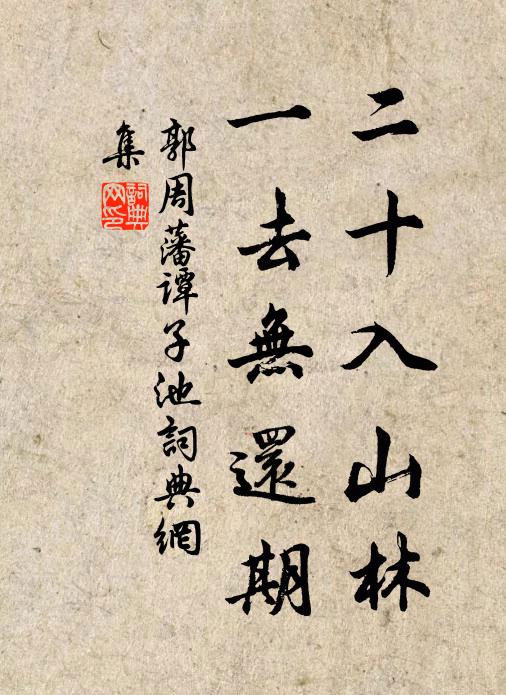 二十入山林
一去無還期
郭周藩譚子池詞典網
集
詞典
网印